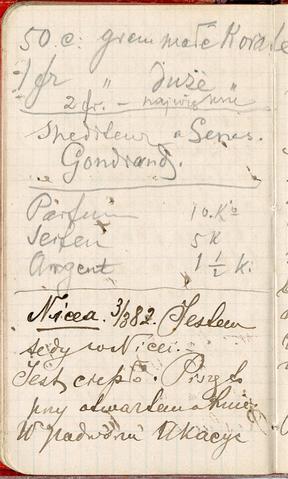 50 c. gram małe Korale
1 fr " duże "
2 fr. - najwięk
Spediteur a Genes.
Gondrand.
Parfum 10. Ko
Seifen 5 K
Argent 1 1/2 K.
Nicea. 3/3 82. Jestem
tedy w Nicei. -
Jest ciepło. Piszę to
przy otwartem oknie
W podwórzu Akacye